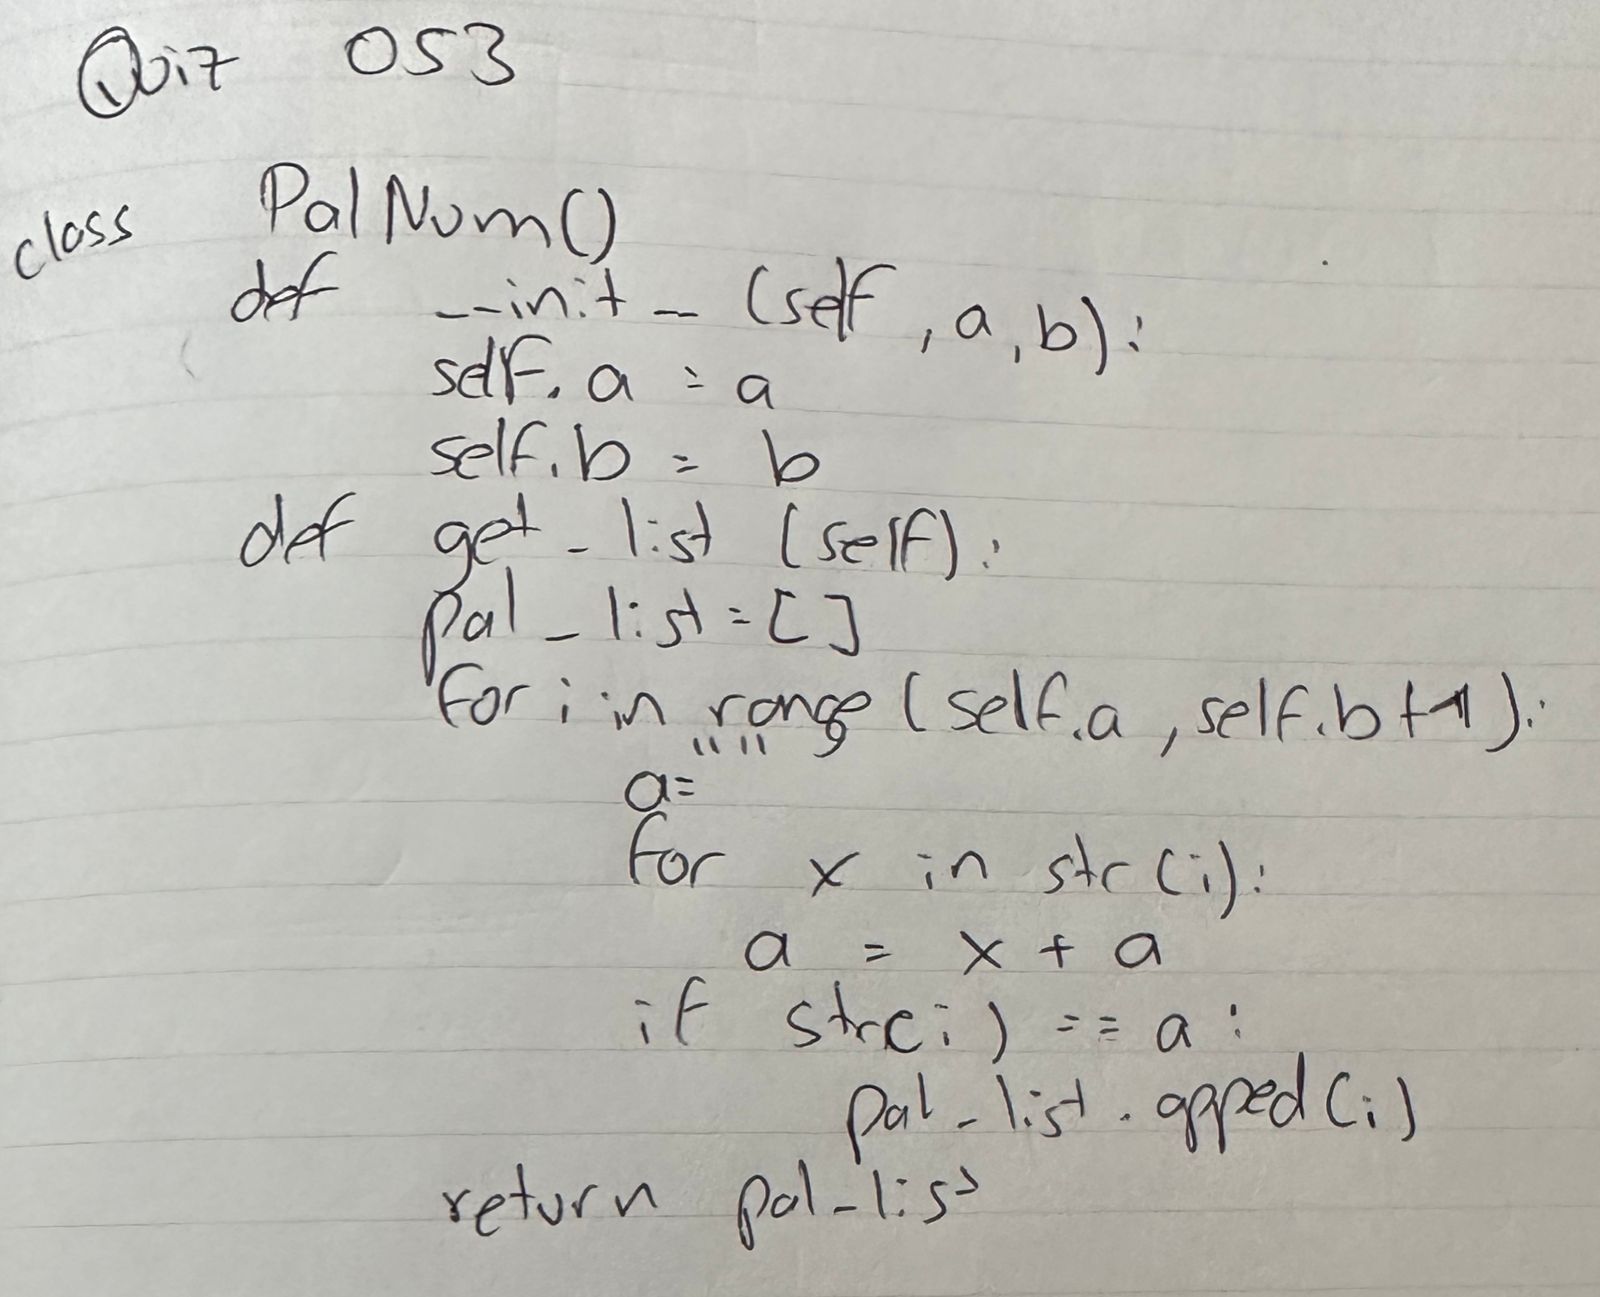 Quiz 053
class PalNum()
def __init__(self, a, b):
self.a = a
self.b = b
def get_list (self):
pal_list = []
for i in range (self.a, self.b+1):
a= """"
for x in str(i):
a = x + a
if str(i) == a:
pal_list.apped(i)
return pal_list